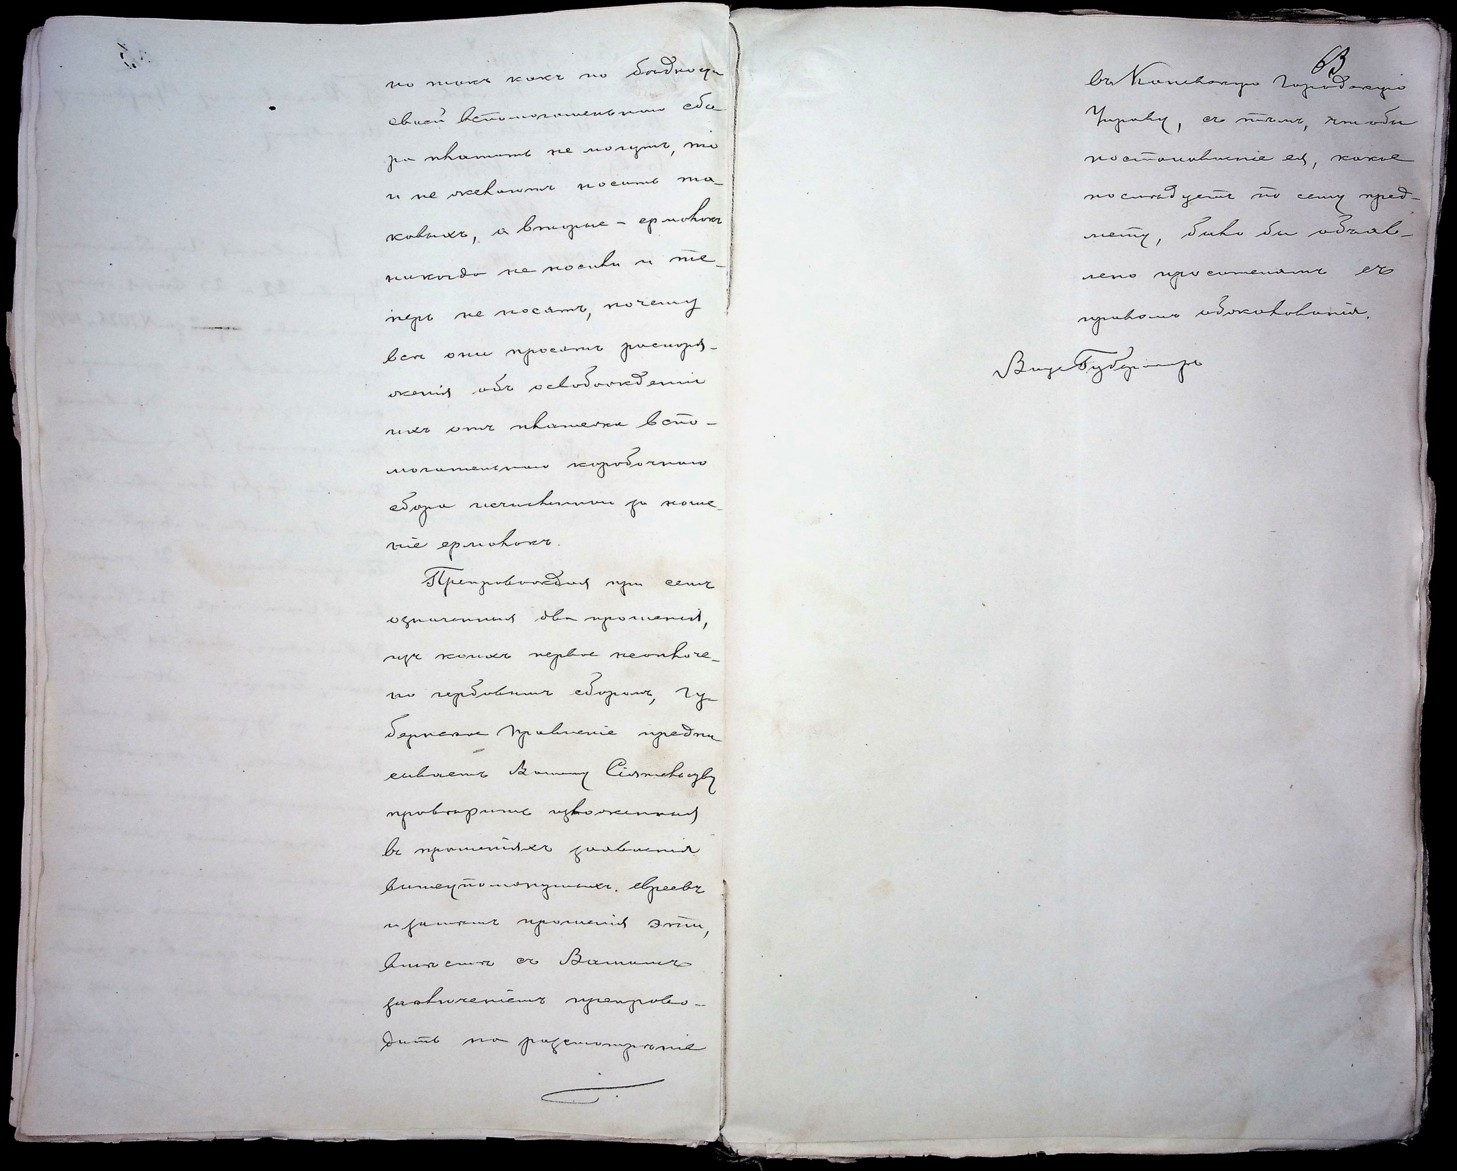 но такъ какъ по бѣдности
своей вспомогательнаго сбо-
ра платить не могутъ, то
и не желаютъ носить та-
ковыхъ, а вторые – ермолокъ
никогда не носили и те-
перь не носятъ, почему
всѣ они просятъ распоря-
женія объ освобожденіи
ихъ отъ платежа вспо-
могательнаго коробочнаго
сбора исчисленнаго за ноше
ніе ермолокъ.
Препровождая при семъ
означенныя два прошенія,
изъ коихъ первое неоплаче-
но гербовымъ сборомъ, Гу-
бернское Правленіе предпи
сываетъ Вашему Сіятельству
провѣрить изложенныя
въ прошеніяхъ заявленія
вышеупомянутыхъ евреевъ
и затѣмъ прошенія эти,
вмѣстѣ съ Вашимъ
заключеніемъ препрово-
дить на разсмотрѣніе
63
въ Кіевскую Городскую
Управу, съ тѣмъ, чтобы
постановленіе ея, какое
послѣдуетъ по сему пред-
мету, было бы объяв-
лено просителямъ съ
правомъ обжалованія.
Вице Губернаторъ